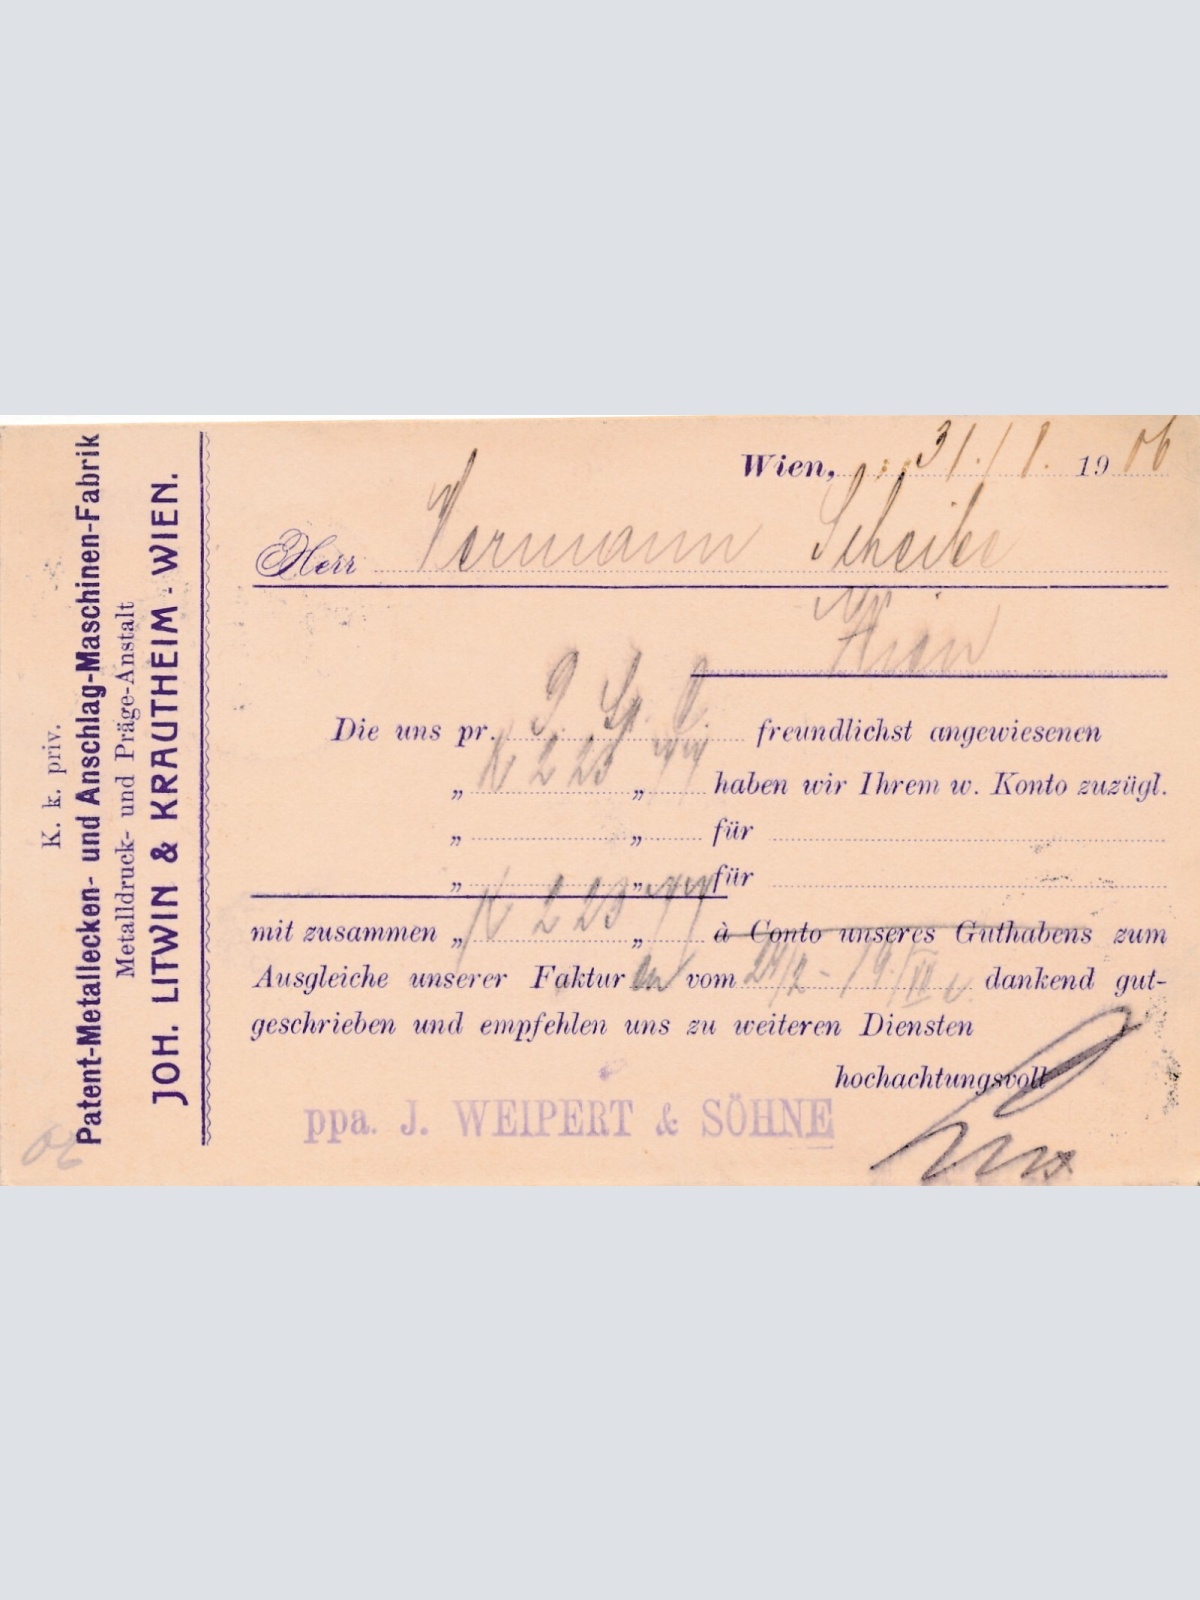 K. k. priv.
Patent-Metallecken- und Anschlag-Maschinen-Fabrik
Metalldruck- und Präge-Anstalt
JOH. LITWIN & KRAUTHEIM - WIEN.
Wien, 31./8. 1906
Herr Hermann Scheibe
Wien
Die uns pr. freundlichst angewiesenen
„ K 223 „ 77 haben wir Ihrem w. Konto zuzügl.
„ „ für
„ „ für
mit zusammen „ K 223 „ 77 à Conto unseres Guthabens zum
Ausgleiche unserer Fakturen vom dankend gut-
geschrieben und empfehlen uns zu weiteren Diensten
hochachtungsvoll
ppa. J. WEIPERT & SÖHNE